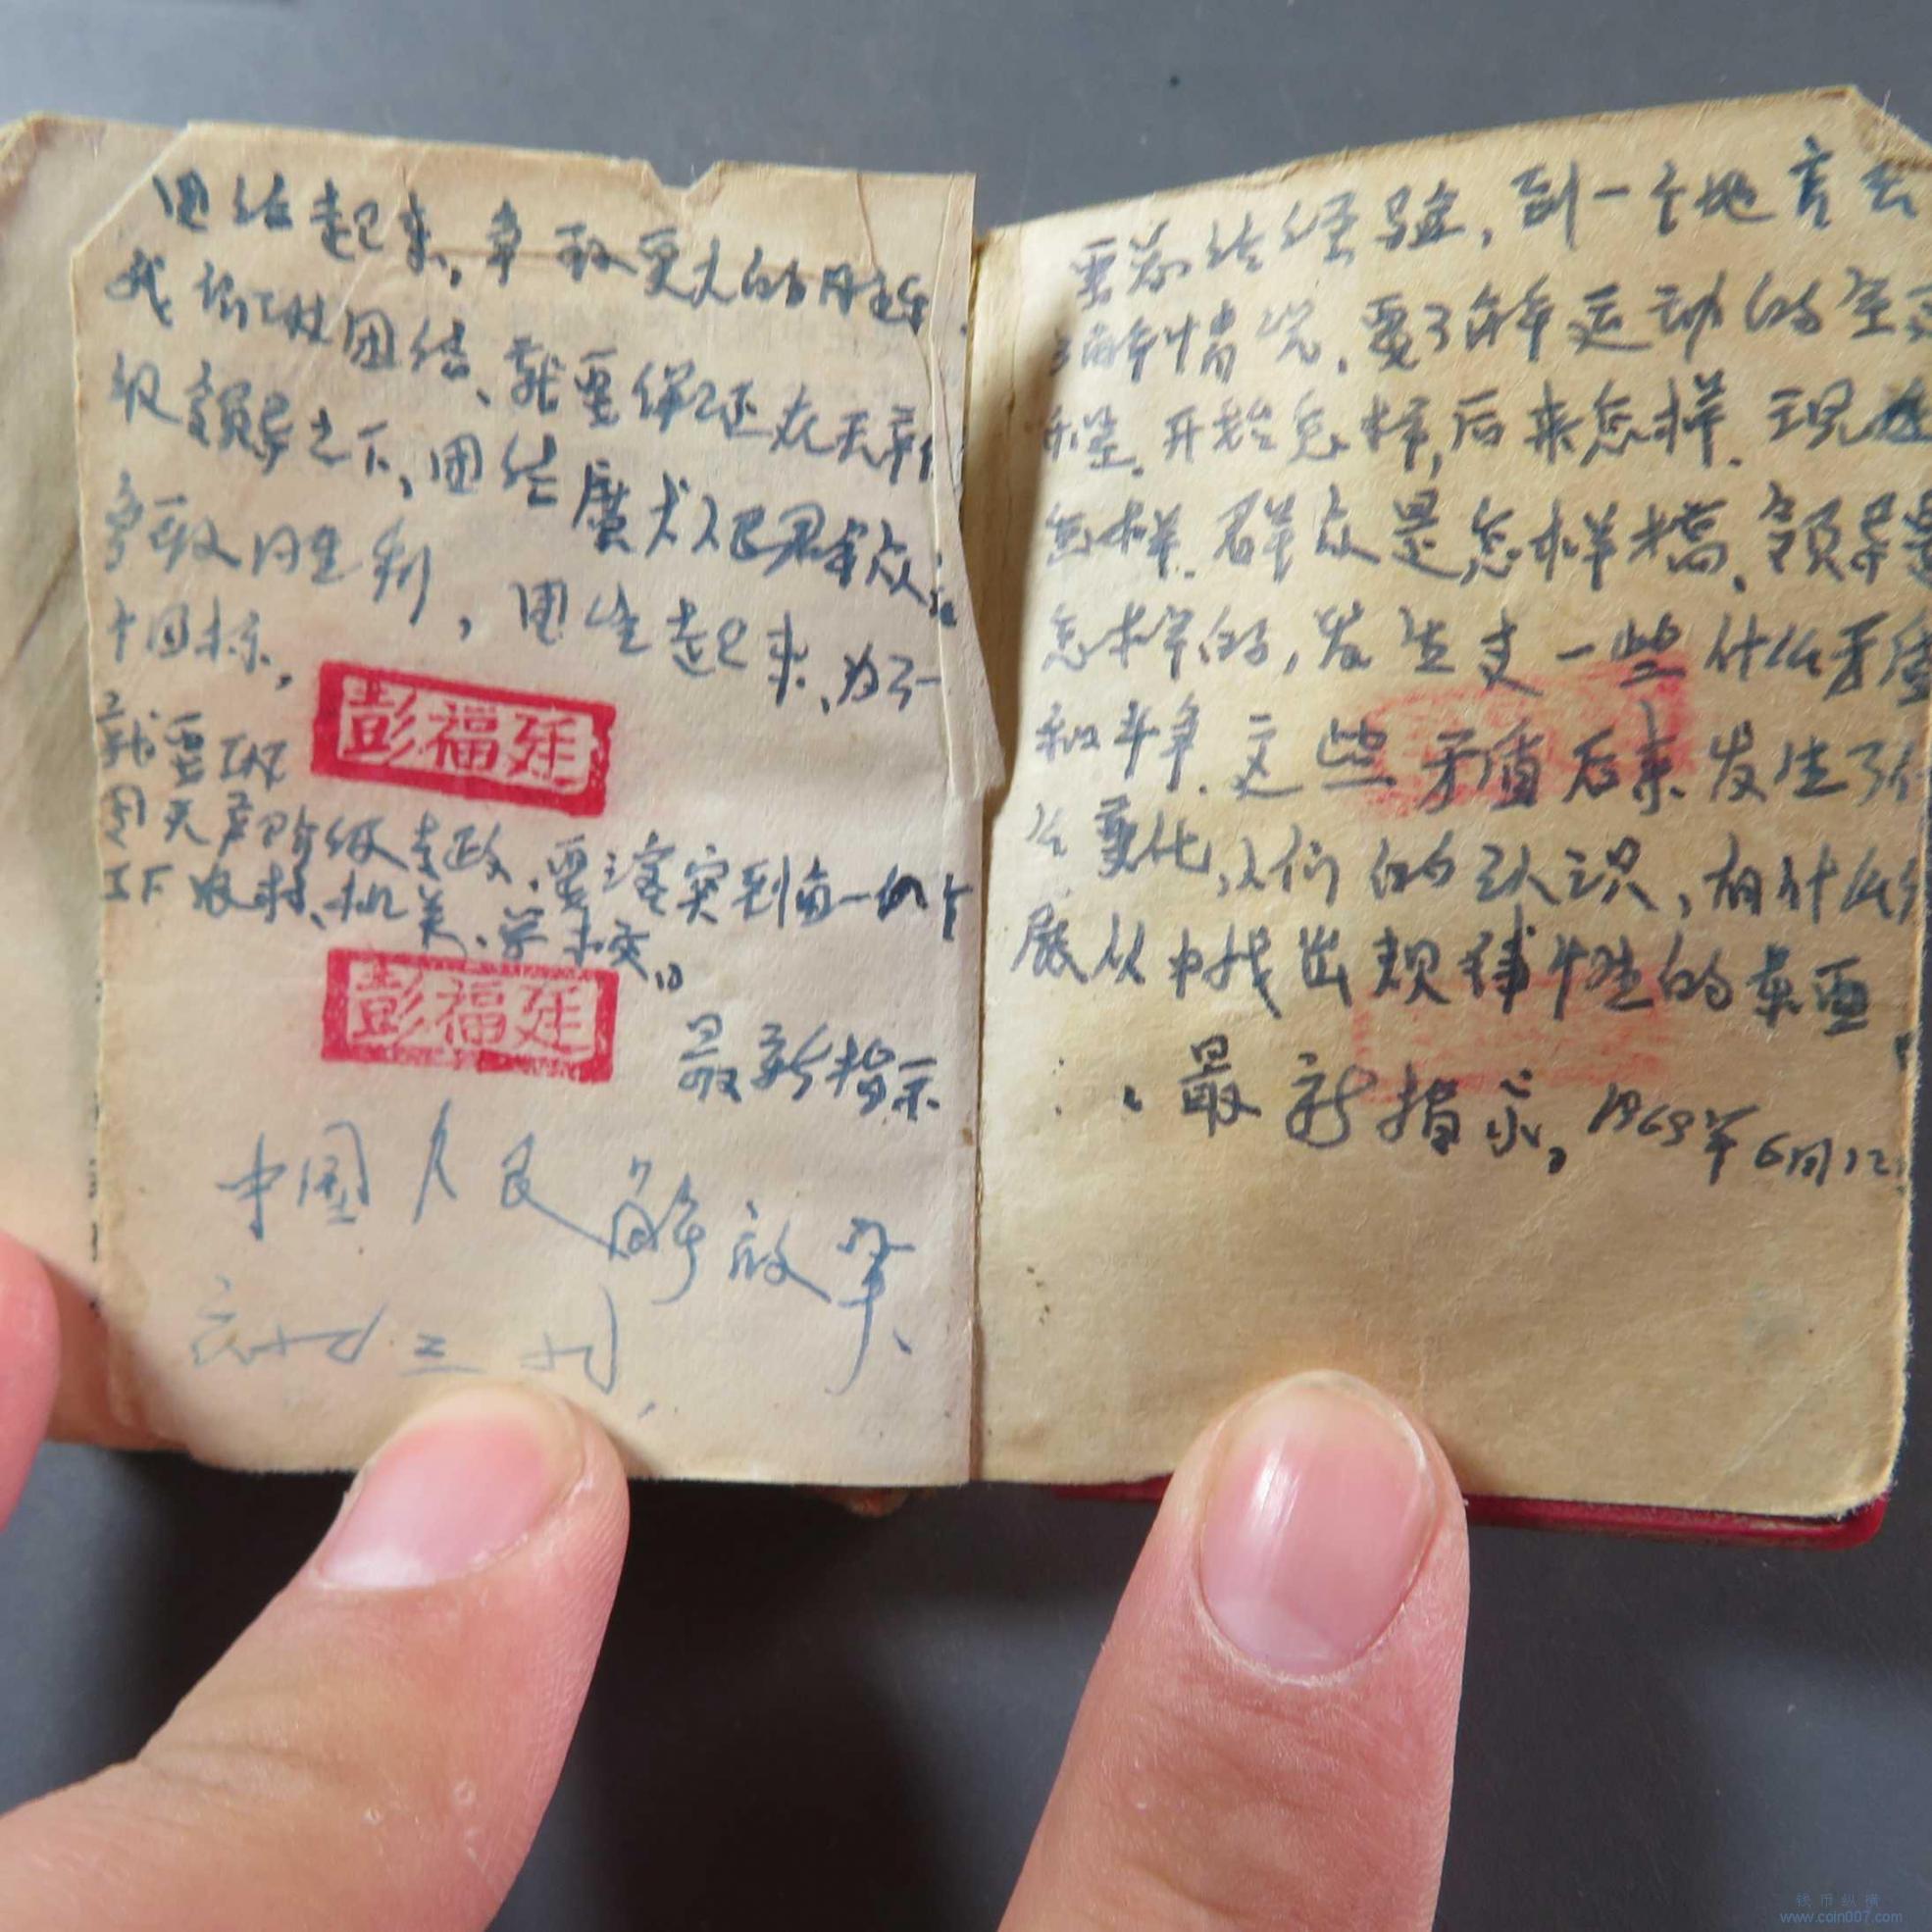 团结起来,争取更大的胜利.
我们说团结、就要继续在无产阶
级领导之下,团结广大人民群众,
争取胜利,团结起来、为了一
个目标,
彭福廷
就要
巩
固无产阶级专政、要落实到每一个
工厂农村、机关、学校。
彭福廷
最新指示
中国人民解放军、
要总结经验,到一个地方去
了解情况,要了解运动的全过
程.开始怎样,后来怎样.现在
怎样.群众是怎样搞、领导是
怎样的,发生过一些什么矛盾
和斗争.这些矛盾后来发生了什
么变化,人们的认识,有什么发
展从中找出规律性的东西
最新指示。1969年6月12
钱币纵横
www.coin007.com